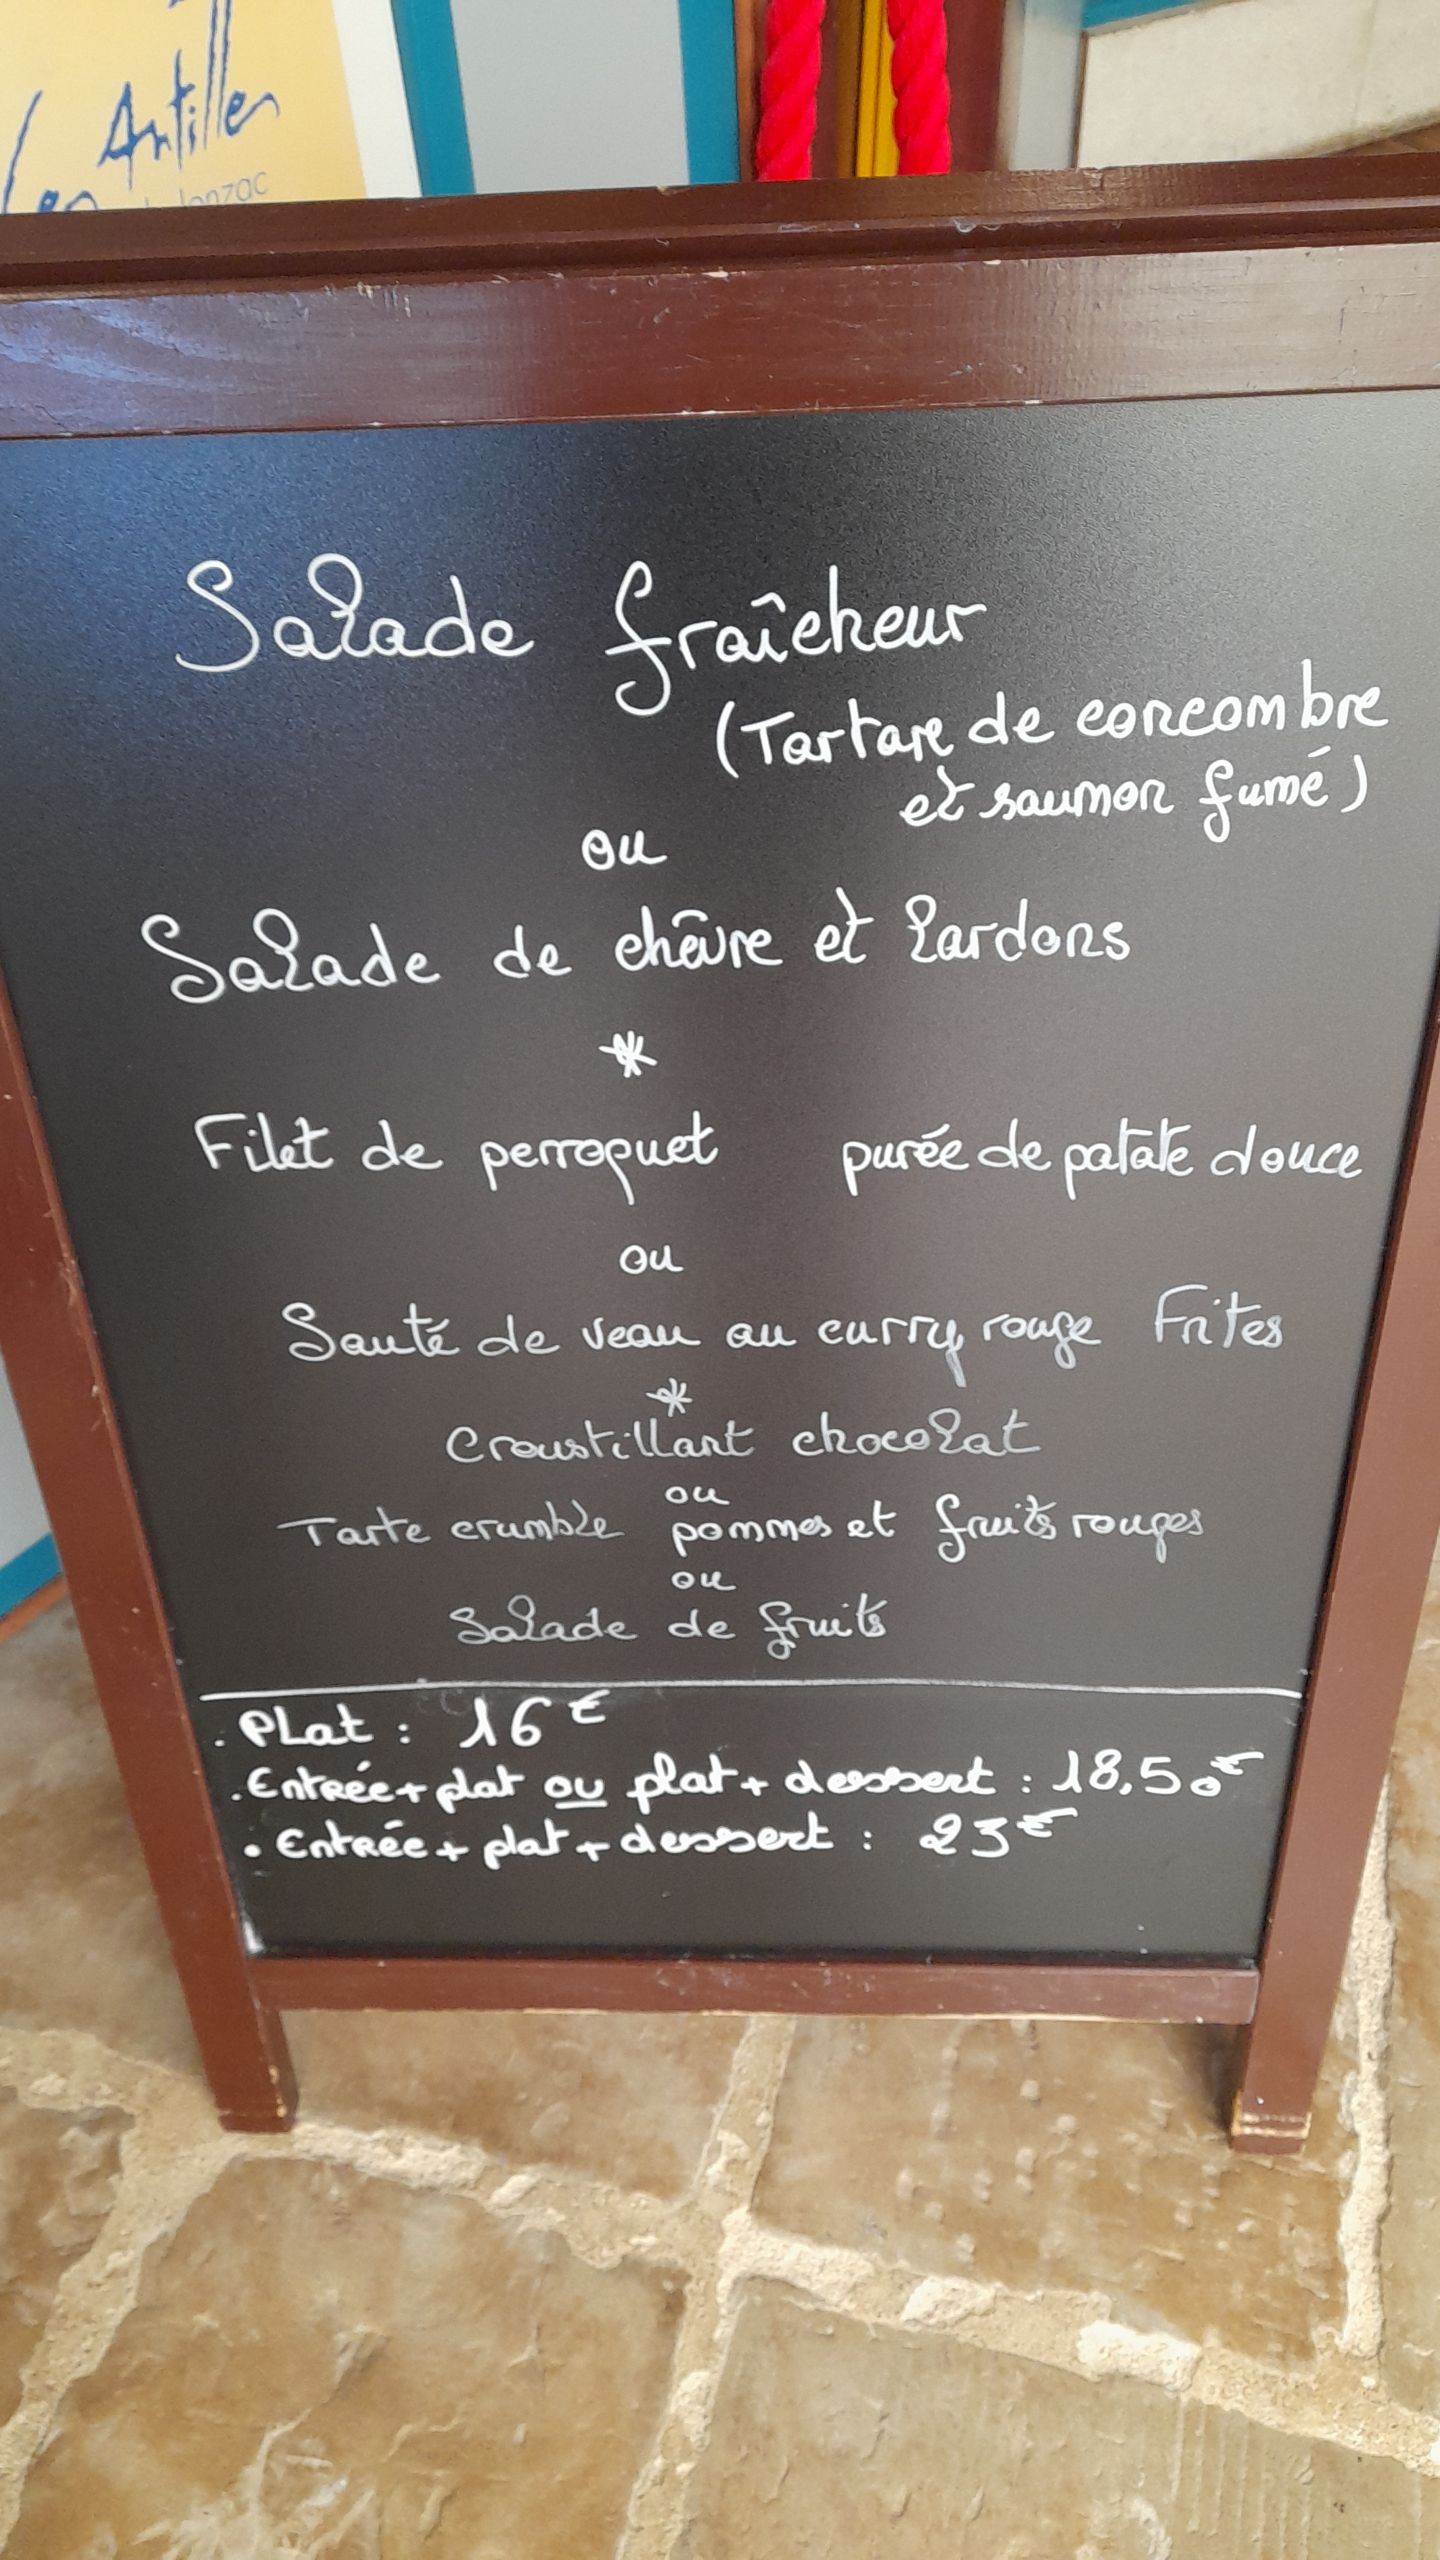 Les Antilles
de Jonzac
Salade fraîcheur
(Tartare de concombre
et saumon fumé)
ou
Salade de chêvre et lardons
*
Filet de perroquet purée de patate douce
ou
Sauté de veau au curry rouge Frites
*
Croustillant chocolat
ou
Tarte crumble pommes et fruits rouges
ou
Salade de fruits
. PLat : 16€
. Entrée + plat ou plat + dessert : 18,50€
• Entrée + plat + dessert : 23€